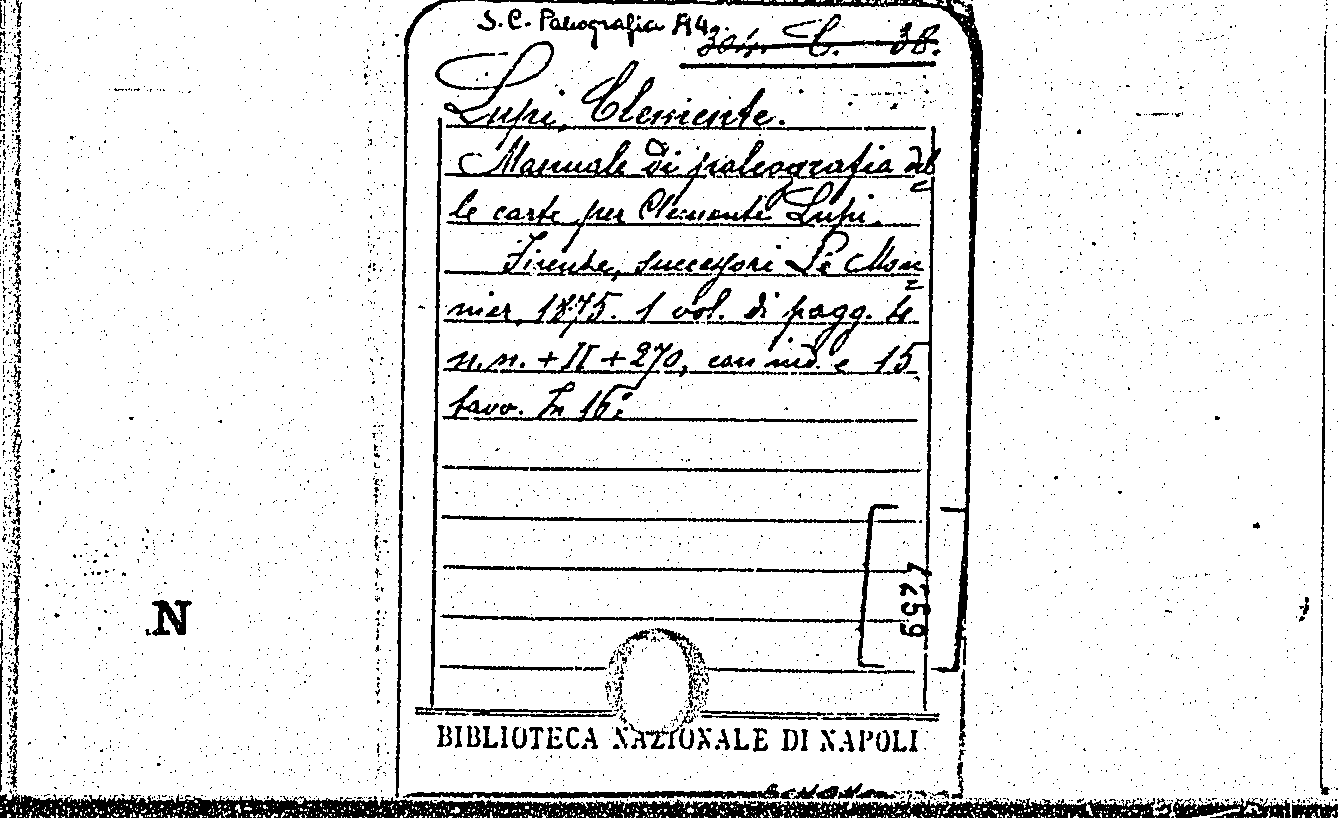 S.C. Paleografia A 42.
304. C. 38.
Lupi, Clemente.
Manuale di paleografia del
le carte per Clemente Lupi.
Firenze, successori Le Mon
nier, 1875. 1 vol. di pagg. 4
n.n. + II + 270, con ind. e 15
tavo. In 16°.
7259
N
BIBLIOTECA NAZIONALE DI NAPOLI